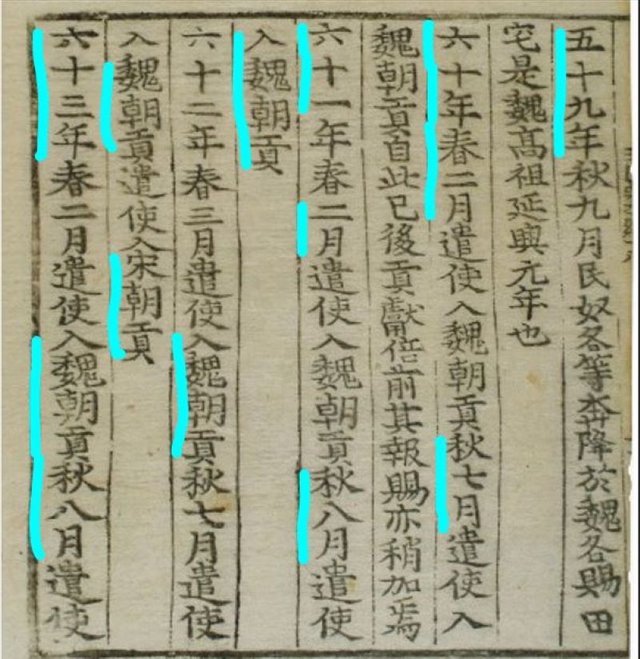 五十九年秋九月民奴各等奔降於魏各賜田
宅是魏髙祖延興元年也
六十年春二月遣使入魏朝貢秋七月遣使入
魏朝貢自此已後貢獻倍前其報賜亦稍加焉
六十一年春二月遣使入魏朝貢秋八月遣使
入魏朝貢
六十二年春三月遣使入魏朝貢秋七月遣使
入魏朝貢遣使入宋朝貢
六十三年春二月遣使入魏朝貢秋八月遣使